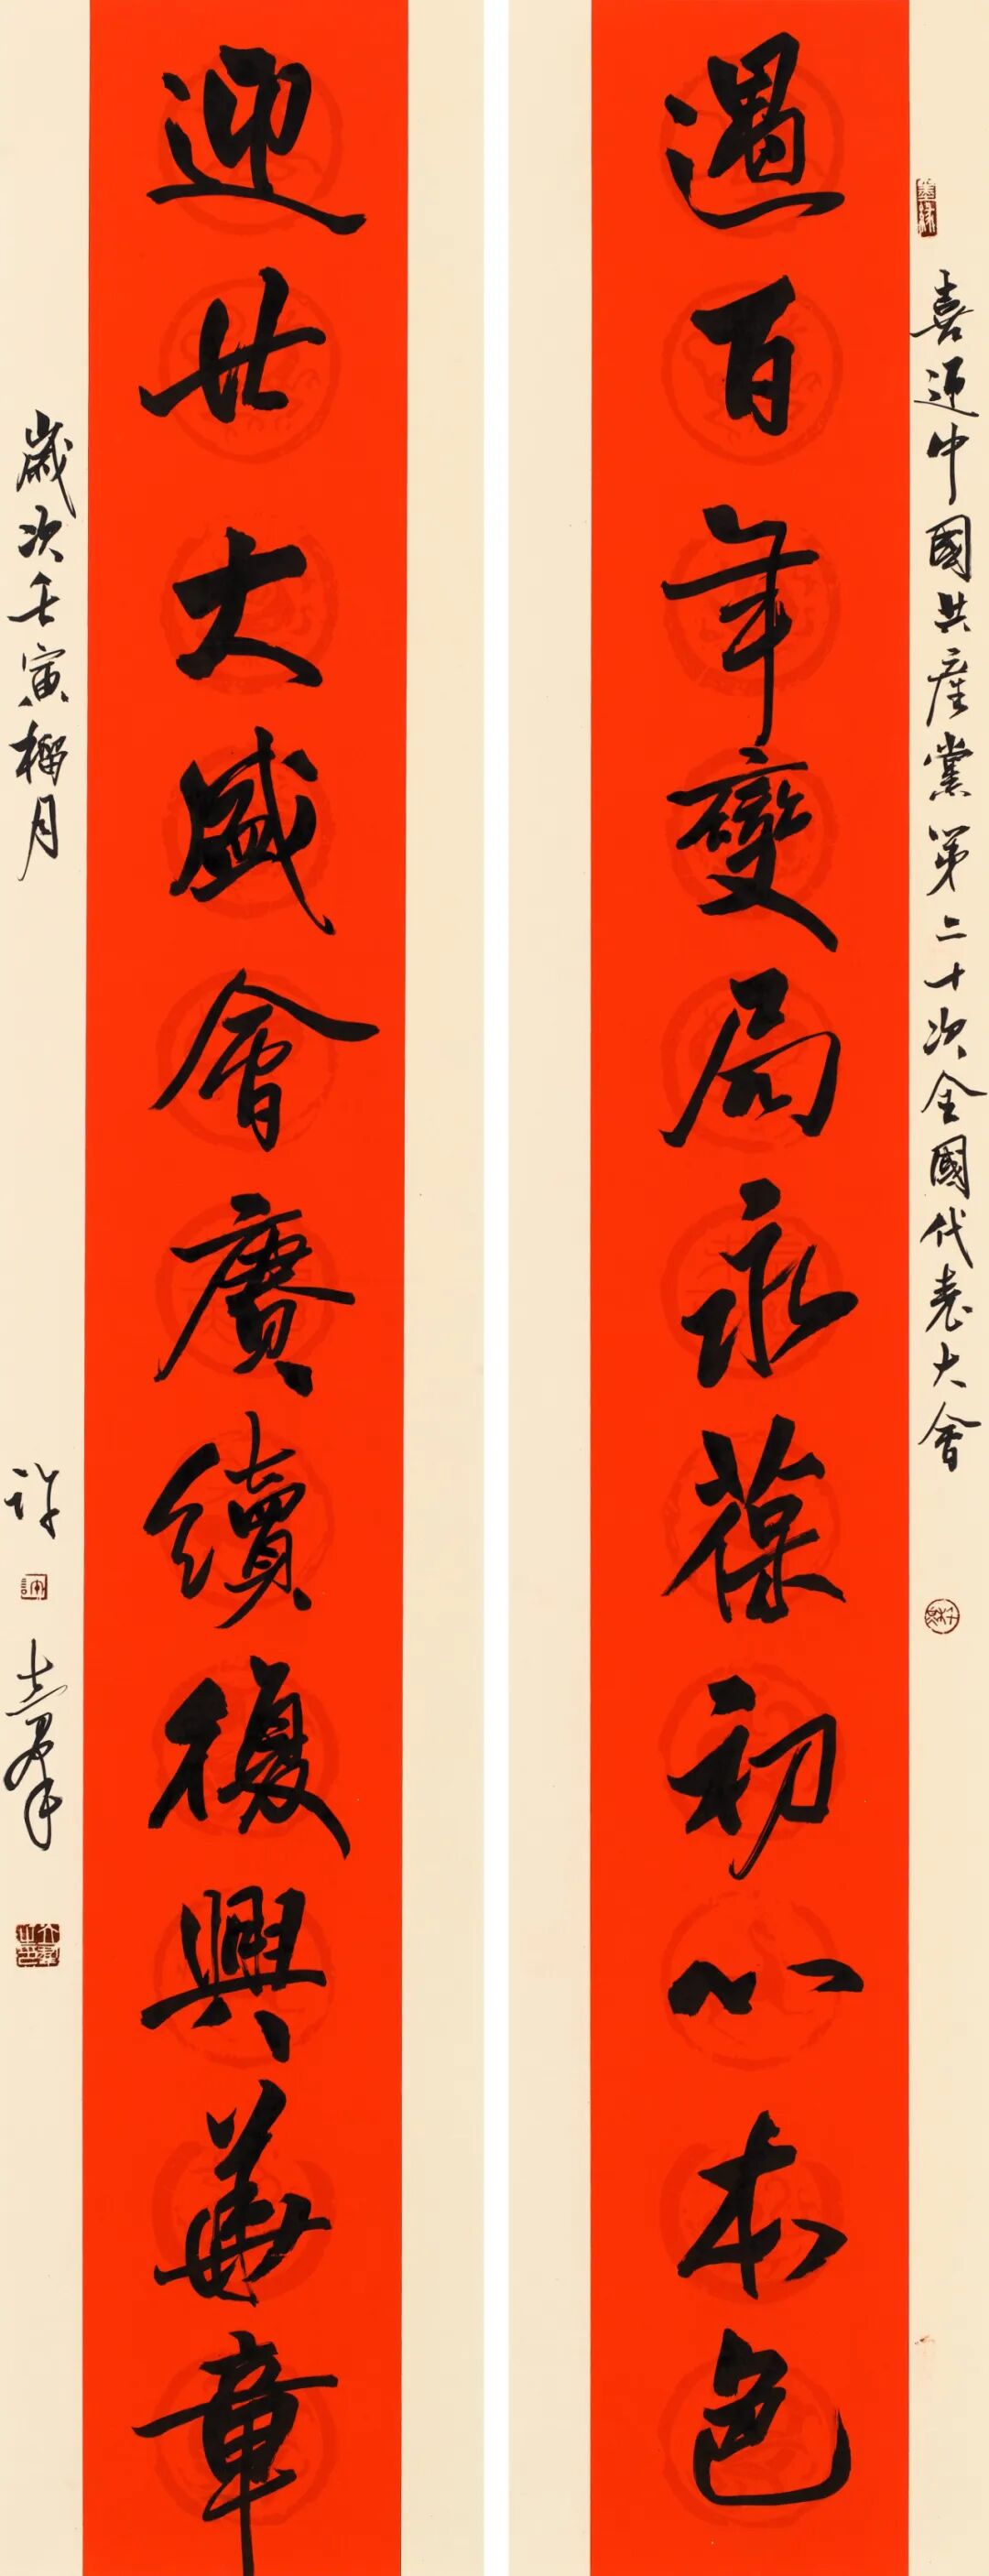 喜迎中國共產黨第二十次全國代表大會
遇百年變局永葆初心本色
迎廿大盛會賡續復興華章
歲次壬寅榴月
許士羣